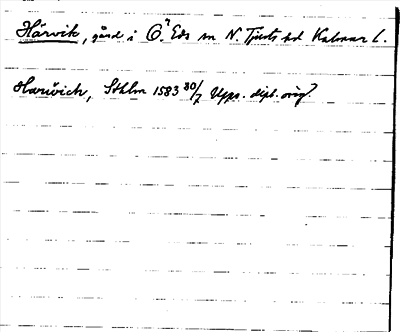 Hårvik, gård i Ö. Eds sn N. Tjusts hd Kalmar l.
Harwich, Sthlm 1583 30/7 Upps. dipl. orig.